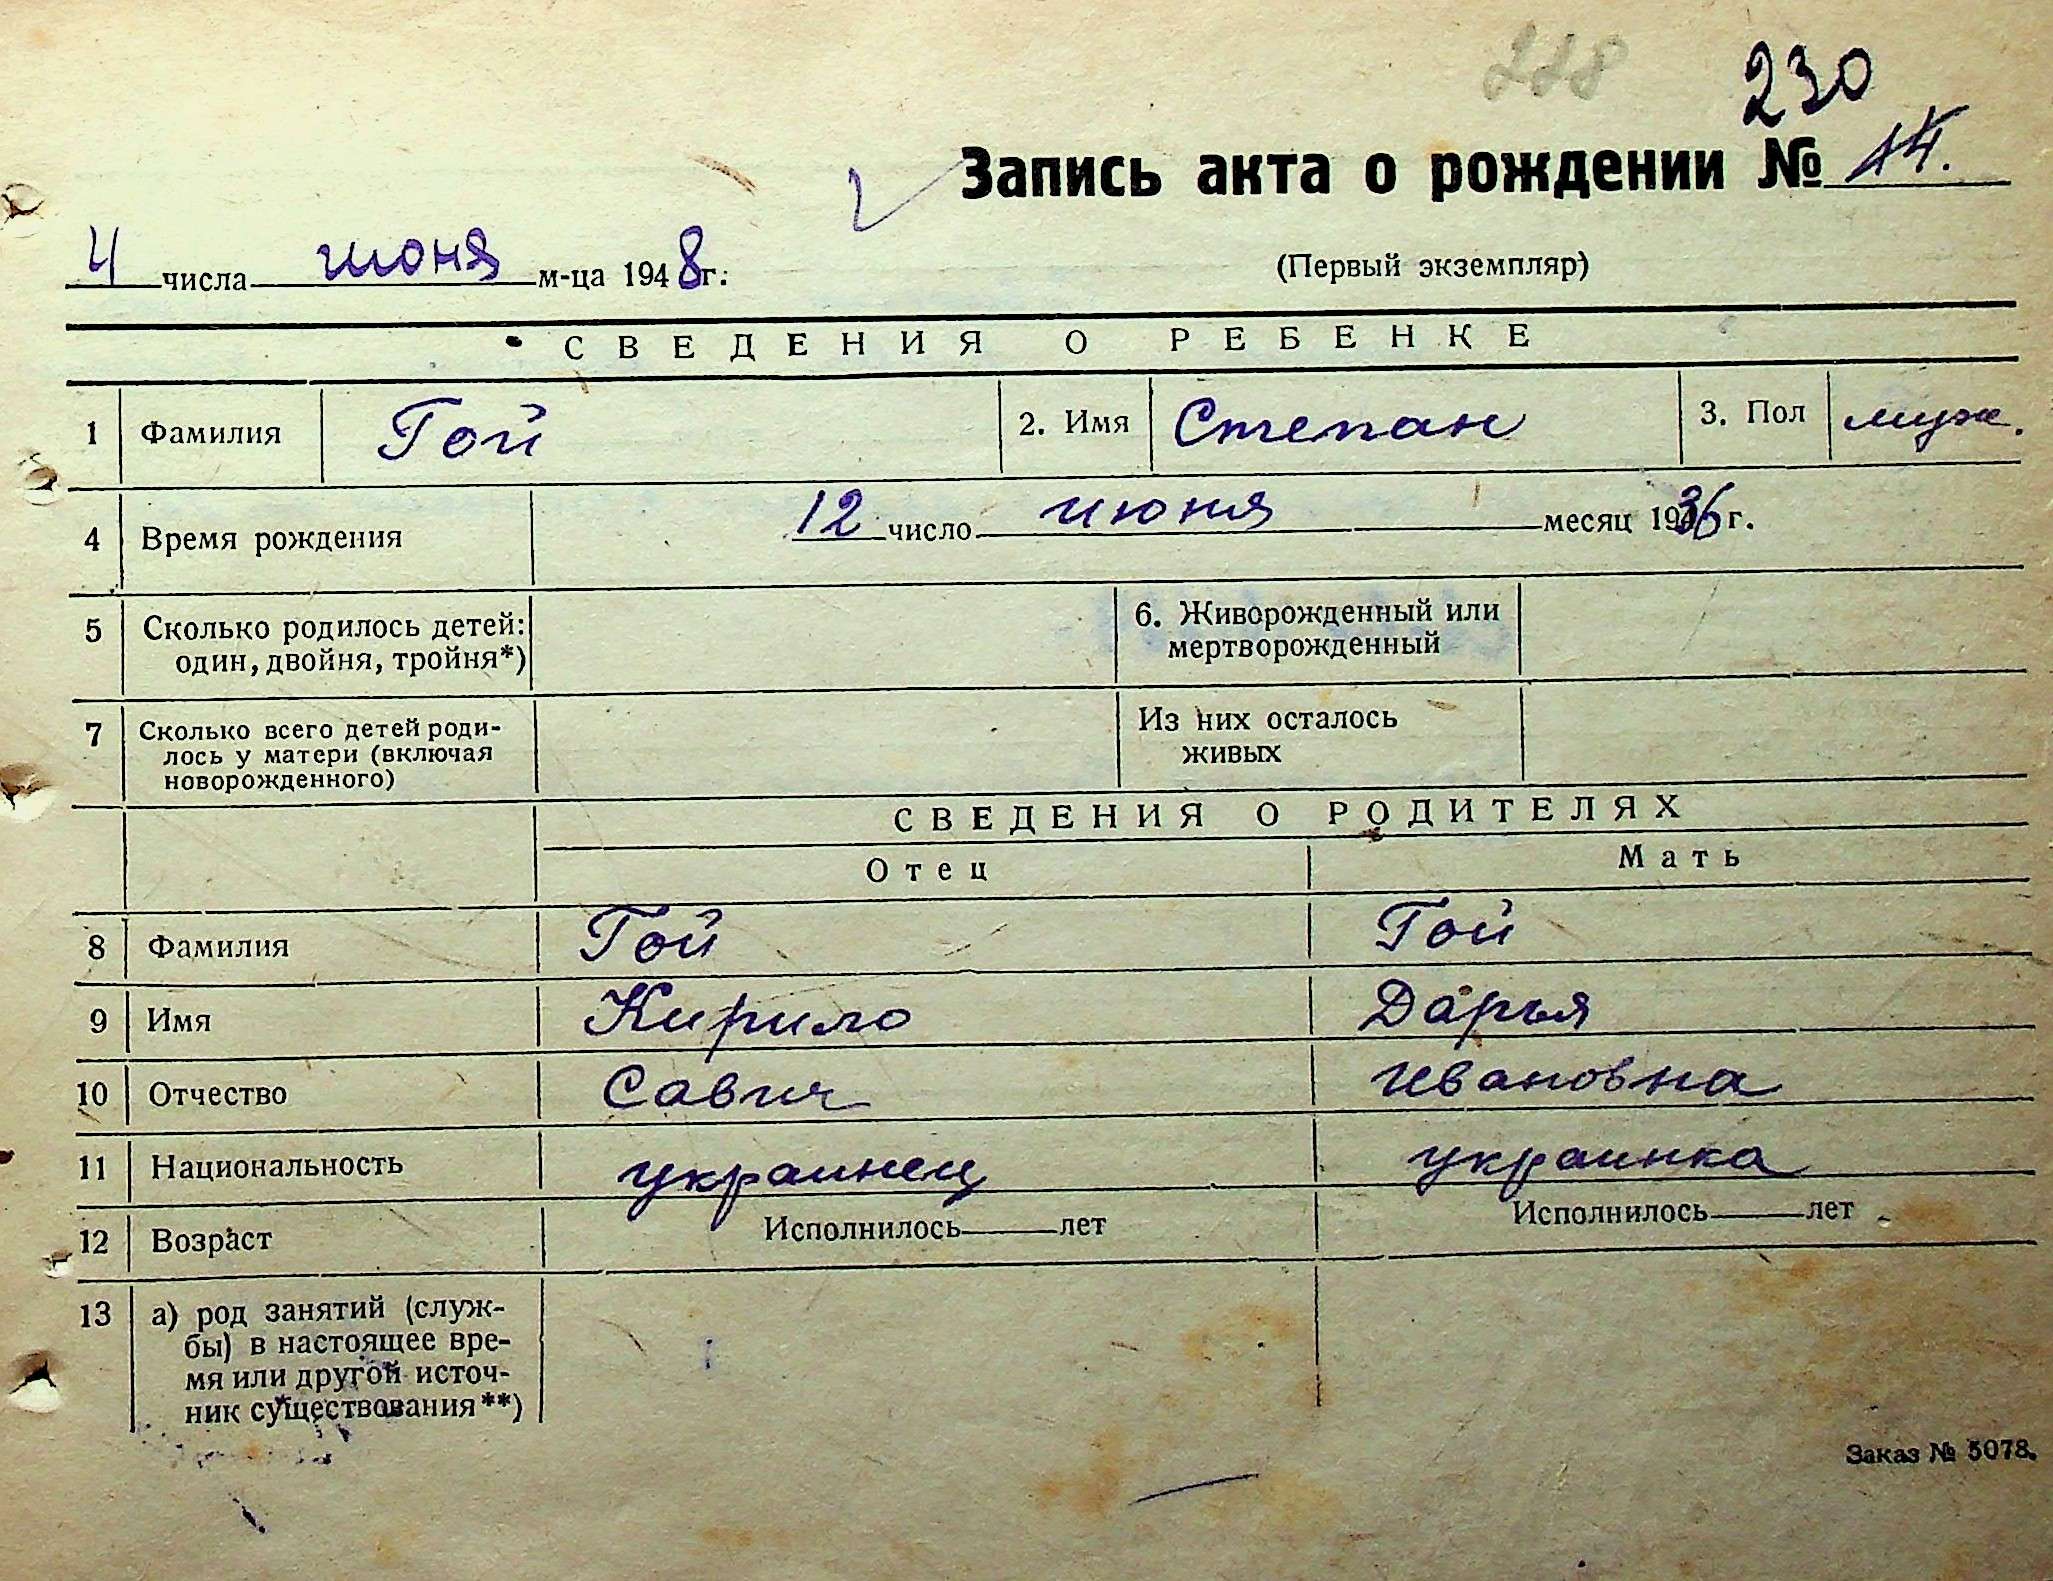 228 230
Запись акта о рождении № 14.
4 числа июня м-ца 1948 г.:
(Первый экземпляр)
СВЕДЕНИЯ О РЕБЕНКЕ
1 Фамилия Гой 2. Имя Степан 3. Пол муж.
4 Время рождения 12 число июня месяц 1936 г.
5 Сколько родилось детей: 6. Живорожденный или
один, двойня, тройня*) мертворожденный
7 Сколько всего детей роди- Из них осталось
лось у матери (включая живых
новорожденного)
СВЕДЕНИЯ О РОДИТЕЛЯХ
Отец Мать
8 Фамилия Гой Гой
9 Имя Кирило Дарья
10 Отчество Савич Ивановна
11 Национальность украинец украинка
12 Возраст Исполнилось лет Исполнилось лет
13 а) род занятий (служ-
бы) в настоящее вре-
мя или другой источ-
ник существования**)
Заказ № 5078.